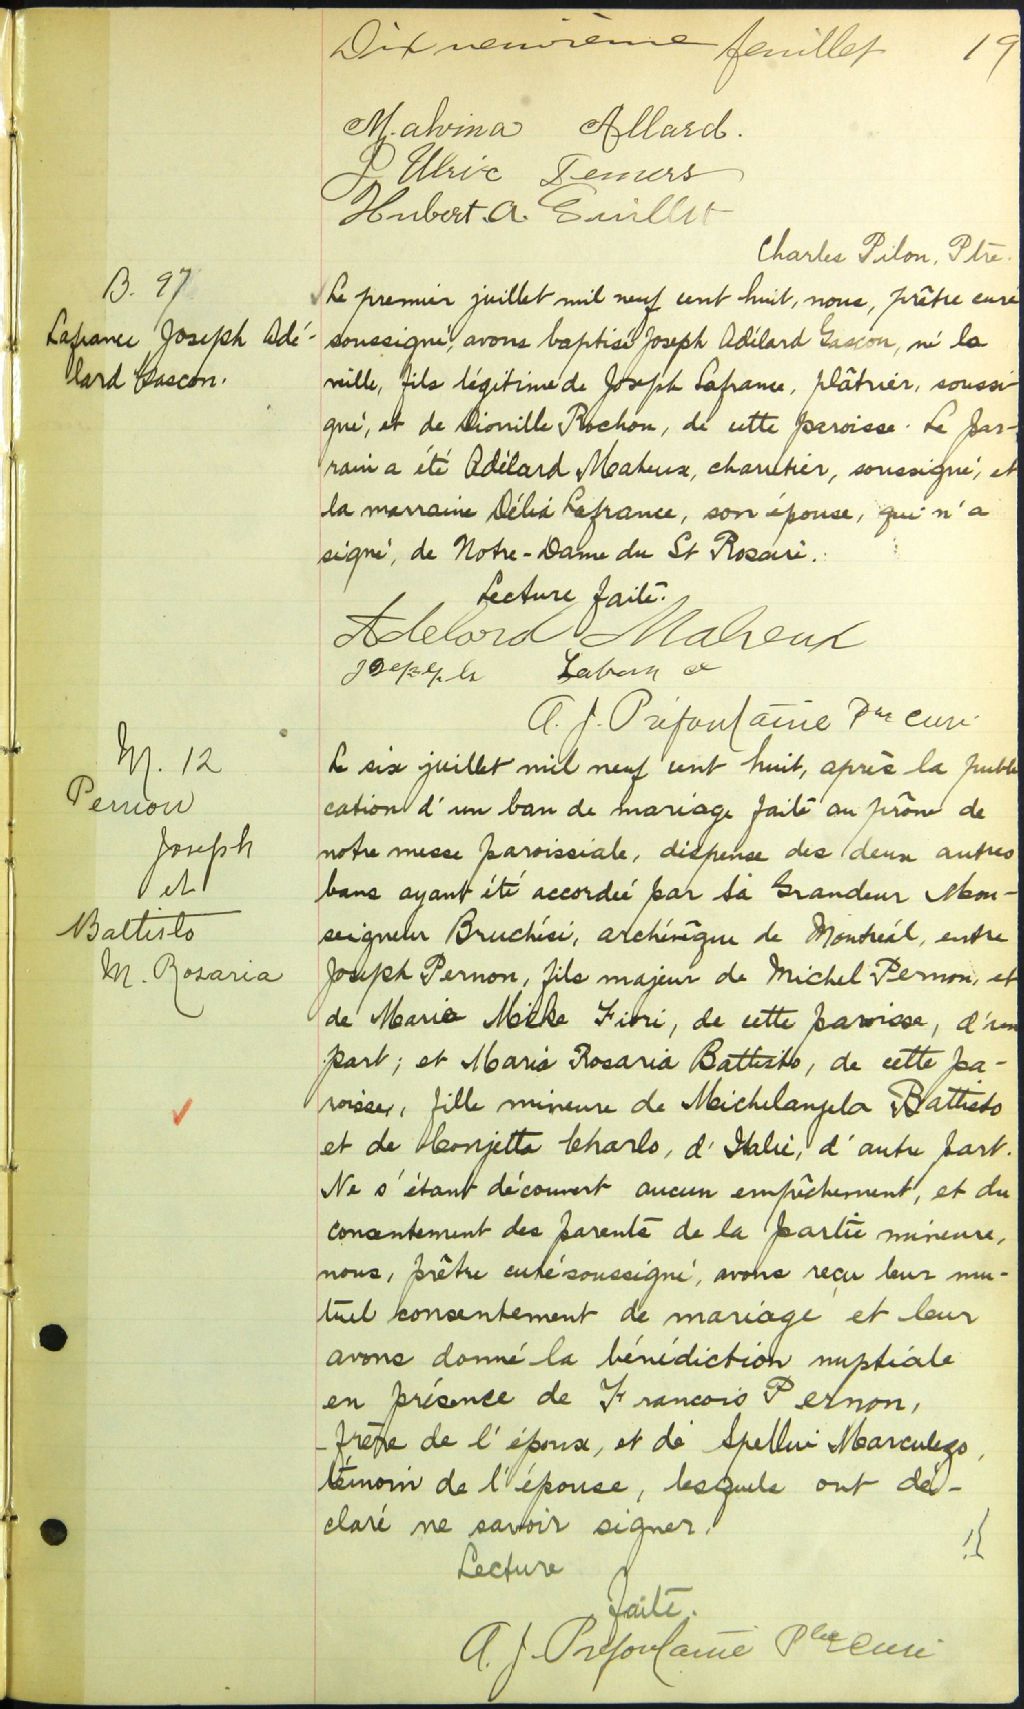 Dix neuvième feuillet 19
Malvina Allard.
J Ulric Demers
Hubert. A. Guillet
Charles Pilon, Ptre.
B. 97
Lafrance Joseph Adé-
lard Gascon.
Le premier juillet mil neuf cent huit, nous, prêtre curé
soussigné, avons baptisé Joseph Adélard Gascon, né la
veille, fils légitime de Joseph Lafrance, plâtrier, soussi
gné, et de Dionille Rochon, de cette paroisse. Le par-
rain a été Adélard Maheux, charretier, soussigné, et
la marraine Délia Lafrance, son épouse, qui n'a
signé, de Notre-Dame du St Rosaire.
Lecture faite.
Adelard Maheux
Joseph
A. J. Préfontaine Ptre Curé
M. 12
Pernon
Joseph
et
Battisto
M. Rosaria
Le six juillet mil neuf cent huit, après la publi
cation d'un ban de mariage faite au prône de
notre messe paroissiale, dispense des deux autres
bans ayant été accordée par Sa Grandeur Mon-
seigneur Bruchési, archévêque de Montréal, entre
Joseph Pernon, fils majeur de Michel Pernon, et
de Marie Fiori, de cette paroisse, d'une
part; et Maria Rosaria Battisto, de cette pa-
roisse, fille mineure de Michelangela Battisto
et de Conjetta Charlo, d'Italie, d'autre part.
Ne s'étant découvert aucun empêchement, et du
consentement des parents de la partie mineure,
nous, prêtre curé soussigné, avons reçu leur mu-
tuel consentement de mariage et leur
avons donné la bénédiction nuptiale
en présence de Francois Pernon,
frère de l'époux, et de Spellui Marculezo,
témoin de l'épouse, lesquels ont dé-
claré ne savoir signer.
Lecture
faite.
A. J. Préfontaine Ptre Curé